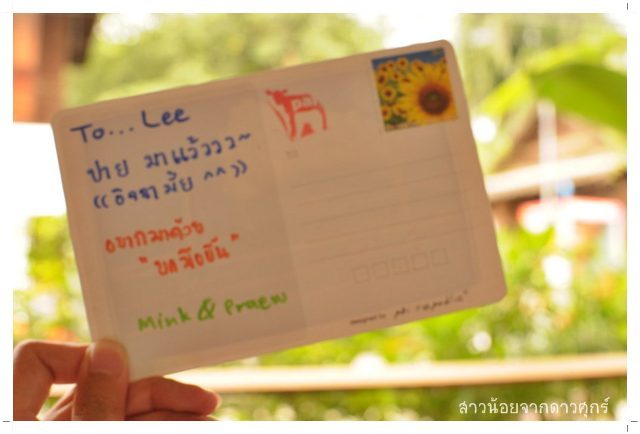 To... Lee
ปาย มาแล้ววว~
((อิจฉามั้ย ^^))
อยากมาด้วย
"บ่
Mink & Praew
pai
Designed by
สาวน้อยจากดาวศุกร์